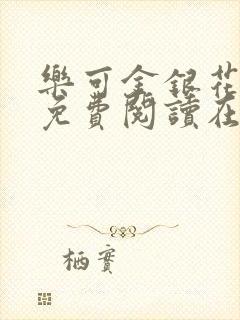 樂可金銀花
免費閱讀在
栖實